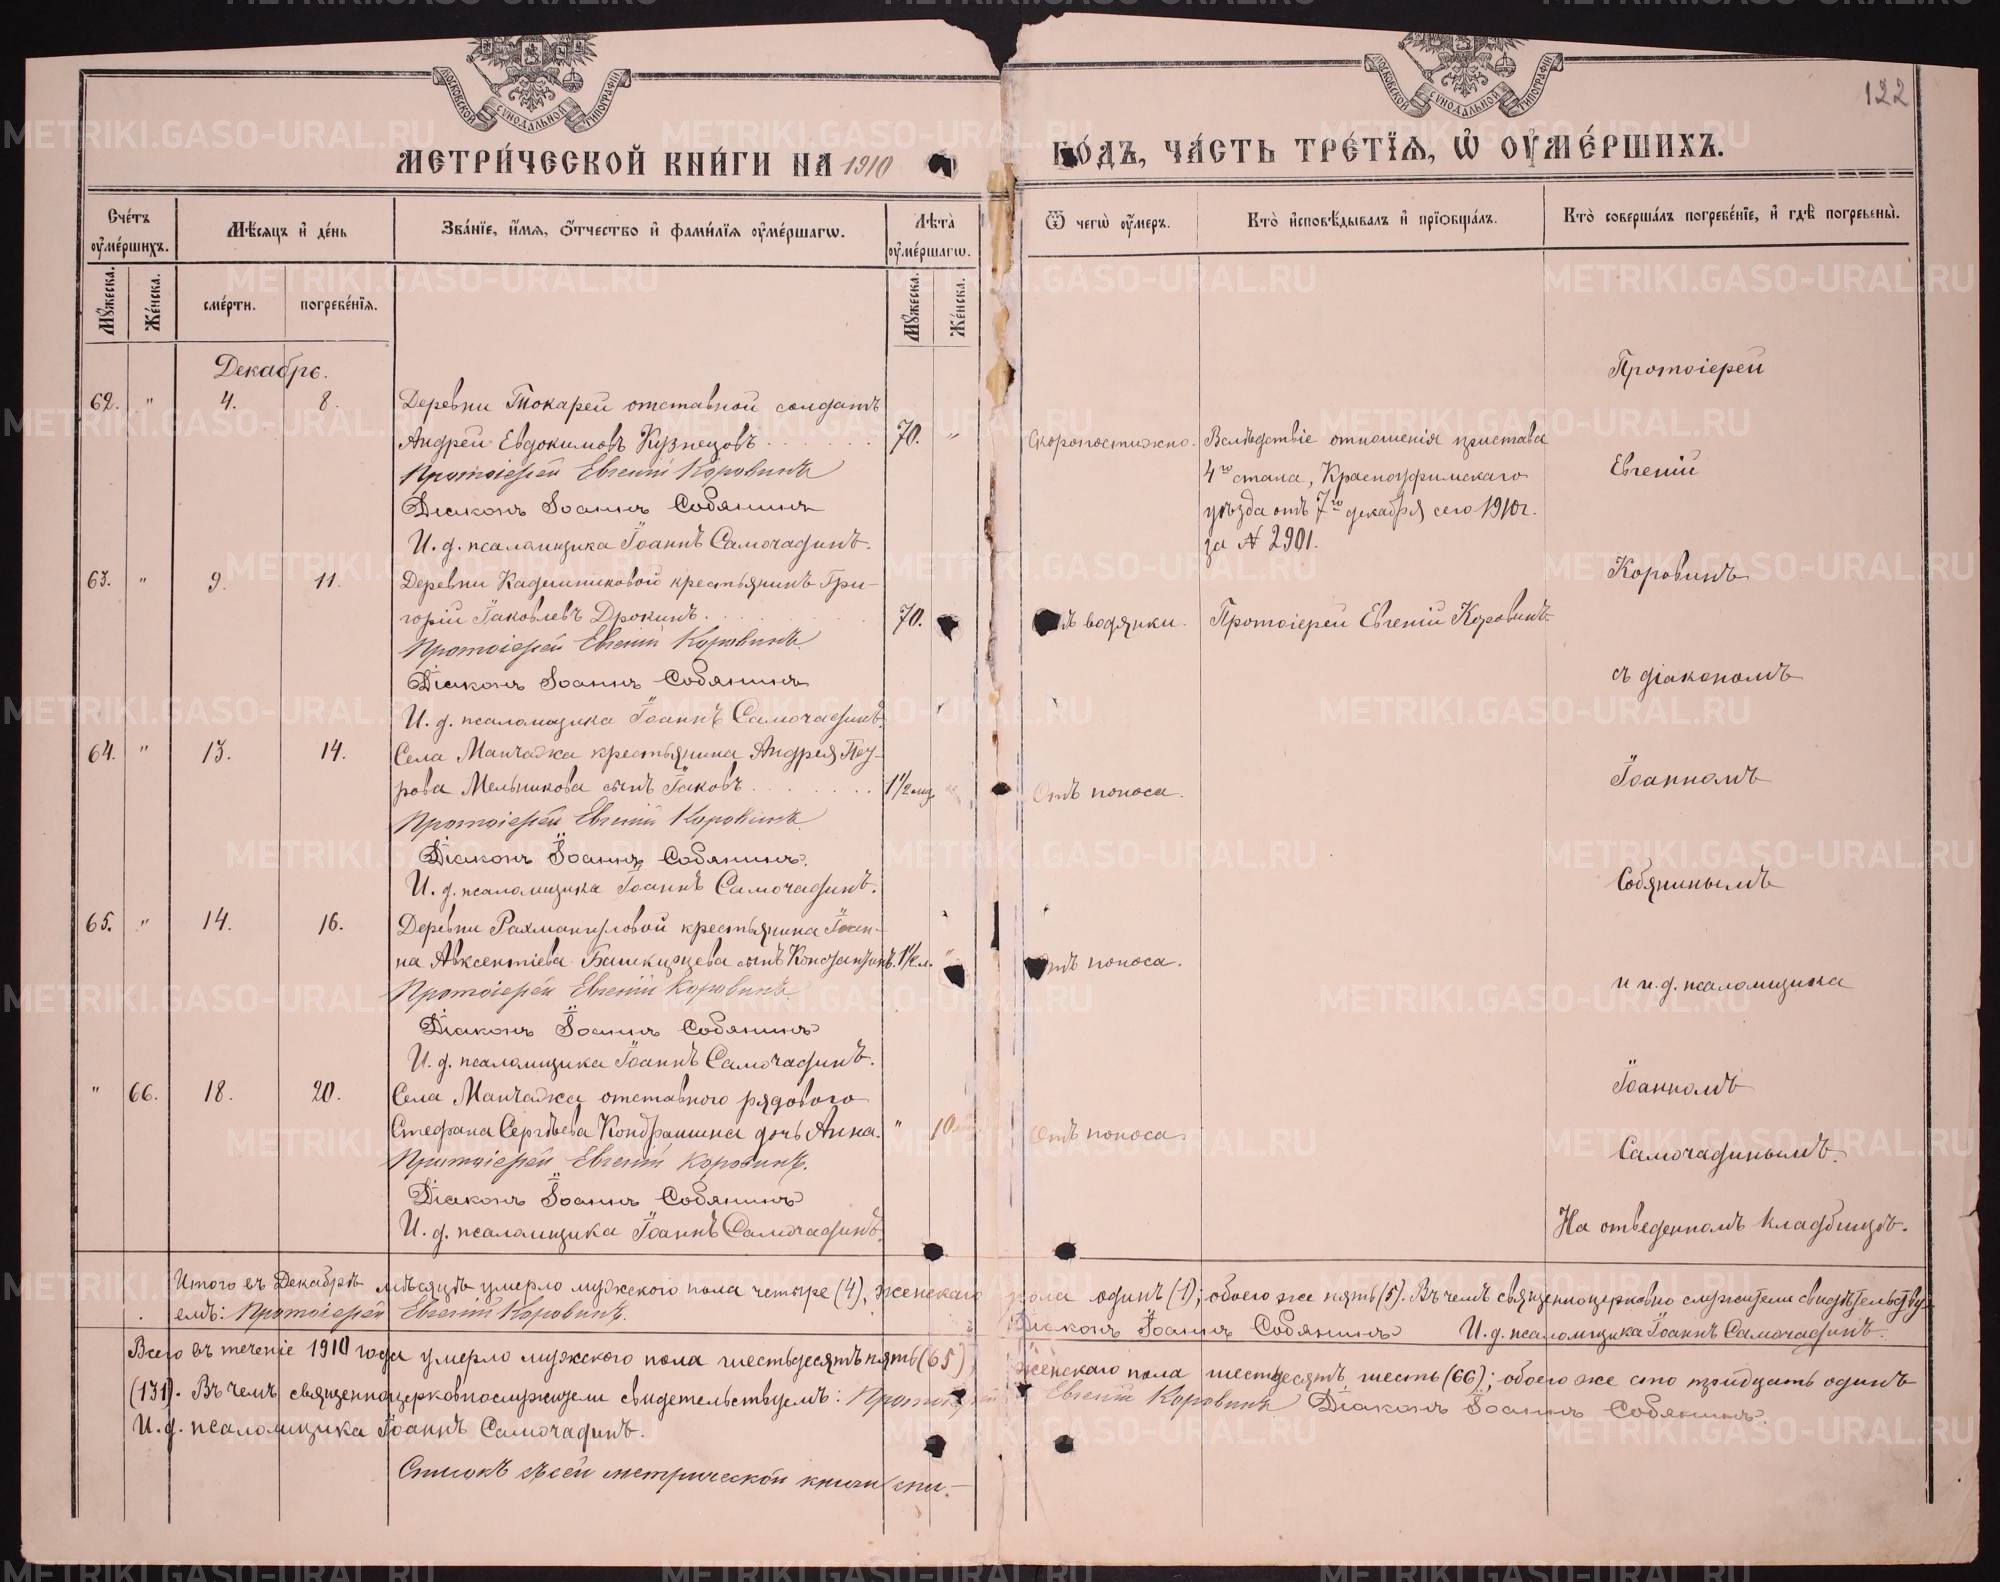 122
МЕТРИЧЕСКОЙ КНИГИ НА 1910 ГОДЪ, ЧАСТЬ ТРЕТІЯ, Ѡ ОУМЕРШИХЪ.
Счетъ оумершихъ.
Мѣсяцъ и день
Званіе, имя, отчество и фамилія оумершагѡ.
Лѣта оумершагѡ.
Ѿ чегѡ оумеръ.
Кто исповѣдывалъ и пріобщалъ.
Кто совершалъ погребеніе, и гдѣ погребены.
Мужеска.
Женска.
смерти.
погребенія.
Мужеска.
Женска.
Декабрь.
62. " 4. 8. Деревни Токарей отставной солдатъ
Андрей Евдокимовъ Кузнецовъ 70. " Скоропостижно. Вслѣдствіе отношенія пристава
4го стана, Красноуфимскаго
уѣзда отъ 7го декабря сего 1910г.
за № 2901.
Протоіерей Евгеній Коровинъ
Діаконъ Іоаннъ Собянинъ
И. д. псаломщика Іоаннъ Самочадинъ.
63. " 9. 11. Деревни Кадошниковой крестьянинъ Гри-
горій Іаковлевъ Дрокинъ. 70. Отъ водянки. Протоіерей Евгеній Коровинъ
Протоіерей Евгеній Коровинъ
Діаконъ Іоаннъ Собянинъ
И. д. псаломщика Іоаннъ Самочадинъ.
64. " 13. 14. Села Манчажа крестьянина Андрея
Мельникова сынъ Іаковъ 1½ мц. Отъ поноса.
Протоіерей Евгеній Коровинъ
Діаконъ Іоаннъ Собянинъ.
И. д. псаломщика Іоаннъ Самочадинъ.
65. " 14. 16. Деревни Рахмангуловой крестьянина Іоан-
на Авксентіева Башкирцева сынъ Константинъ. 1½ л. " Отъ поноса.
Протоіерей Евгеній Коровинъ
Діаконъ Іоаннъ Собянинъ
И. д. псаломщика Іоаннъ Самочадинъ.
" 66. 18. 20. Села Манчажа отставного рядового
Стефана Сергѣева Кондрашина дочь Анна. " 10 Отъ поноса.
Протоіерей Евгеній Коровинъ.
Діаконъ Іоаннъ Собянинъ
И. д. псаломщика Іоаннъ Самочадинъ.
Протоіерей
Евгеній
Коровинъ
съ діакономъ
Іоанномъ
Собянинымъ
и и. д. псаломщика
Іоанномъ
Самочадинымъ.
На отведенномъ кладбищѣ.
Итого въ Декабрѣ мѣсяцѣ умерло мужского пола четыре (4), женскаго пола одинъ (1); обоего же пять (5). Въ чемъ священноцерковно служители свидѣтельству-
емъ: Протоіерей Евгеній Коровинъ. Діаконъ Іоаннъ Собянинъ И. д. псаломщика Іоаннъ Самочадинъ.
Всего въ теченіе 1910 года умерло мужского пола шестьдесятъ пять (65), женскаго пола шестдесятъ шесть (66); обоего же сто тридцать одинъ
(131). Въ чемъ священноцерковнослужители свидетельствуемъ: Протоіерей Евгеній Коровинъ Діаконъ Іоаннъ Собянинъ.
И. д. псаломщика Іоаннъ Самочадинъ.
метрической книги
METRIKI.GASO-URAL.RU